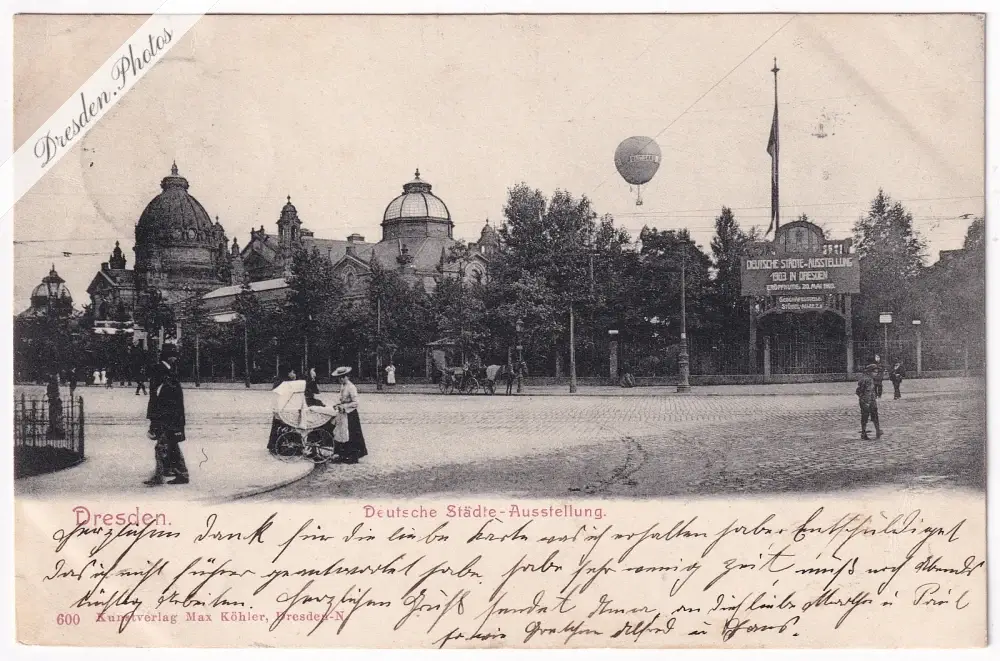 Dresden.Photos
DEUTSCHE STÄDTE-AUSSTELLUNG
1903 IN DRESDEN
ERÖFFNUNG 20. MAI 1903.
Dresden.
Deutsche Städte-Ausstellung.
Herzlichen Dank für die liebe Karte was ich erhalten habe Entschuldiget
das ich nicht früher geantwortet habe. habe sehr wenig Zeit muß noch Abends
tüchtig Arbeiten. Herzlichen Gruß sendet an dich liebe Martha u Paul
so wie Gretchen Alfred u Hans.
600 Kunstverlag Max Köhler, Dresden-N.